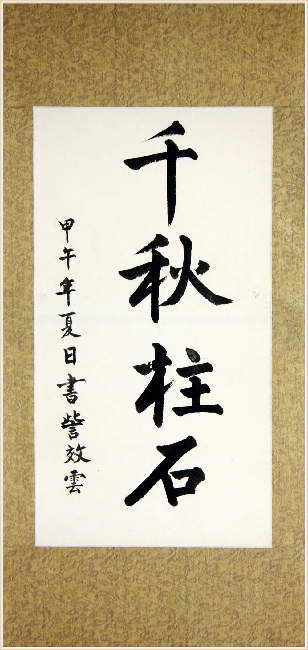 千秋柱石
甲午年夏日書訾效雲